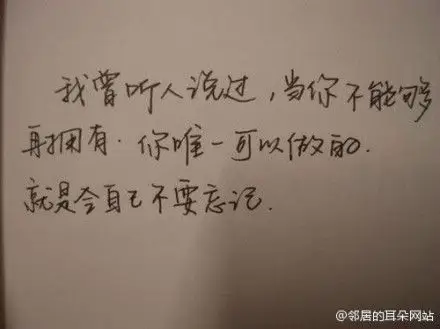 我曾听人说过，当你不能够
再拥有．你唯一可以做的．
就是令自己不要忘记．
@邻居的耳朵网站